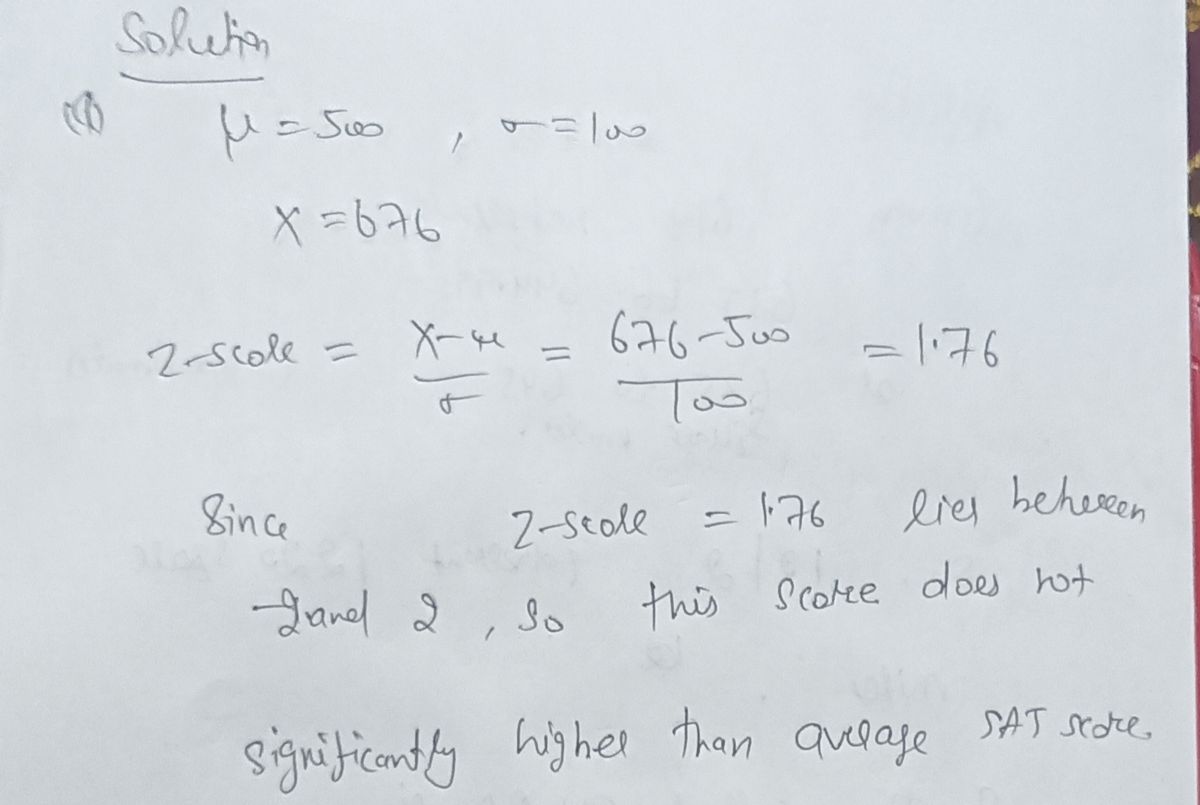 Solution
(1) μ = 500 , σ = 100
X = 676
Z-score = X-μ / σ = 676-500 / 100 = 1.76
Since Z-score = 1.76 lies between
-2 and 2 , So this score does not
significantly higher than average SAT score.